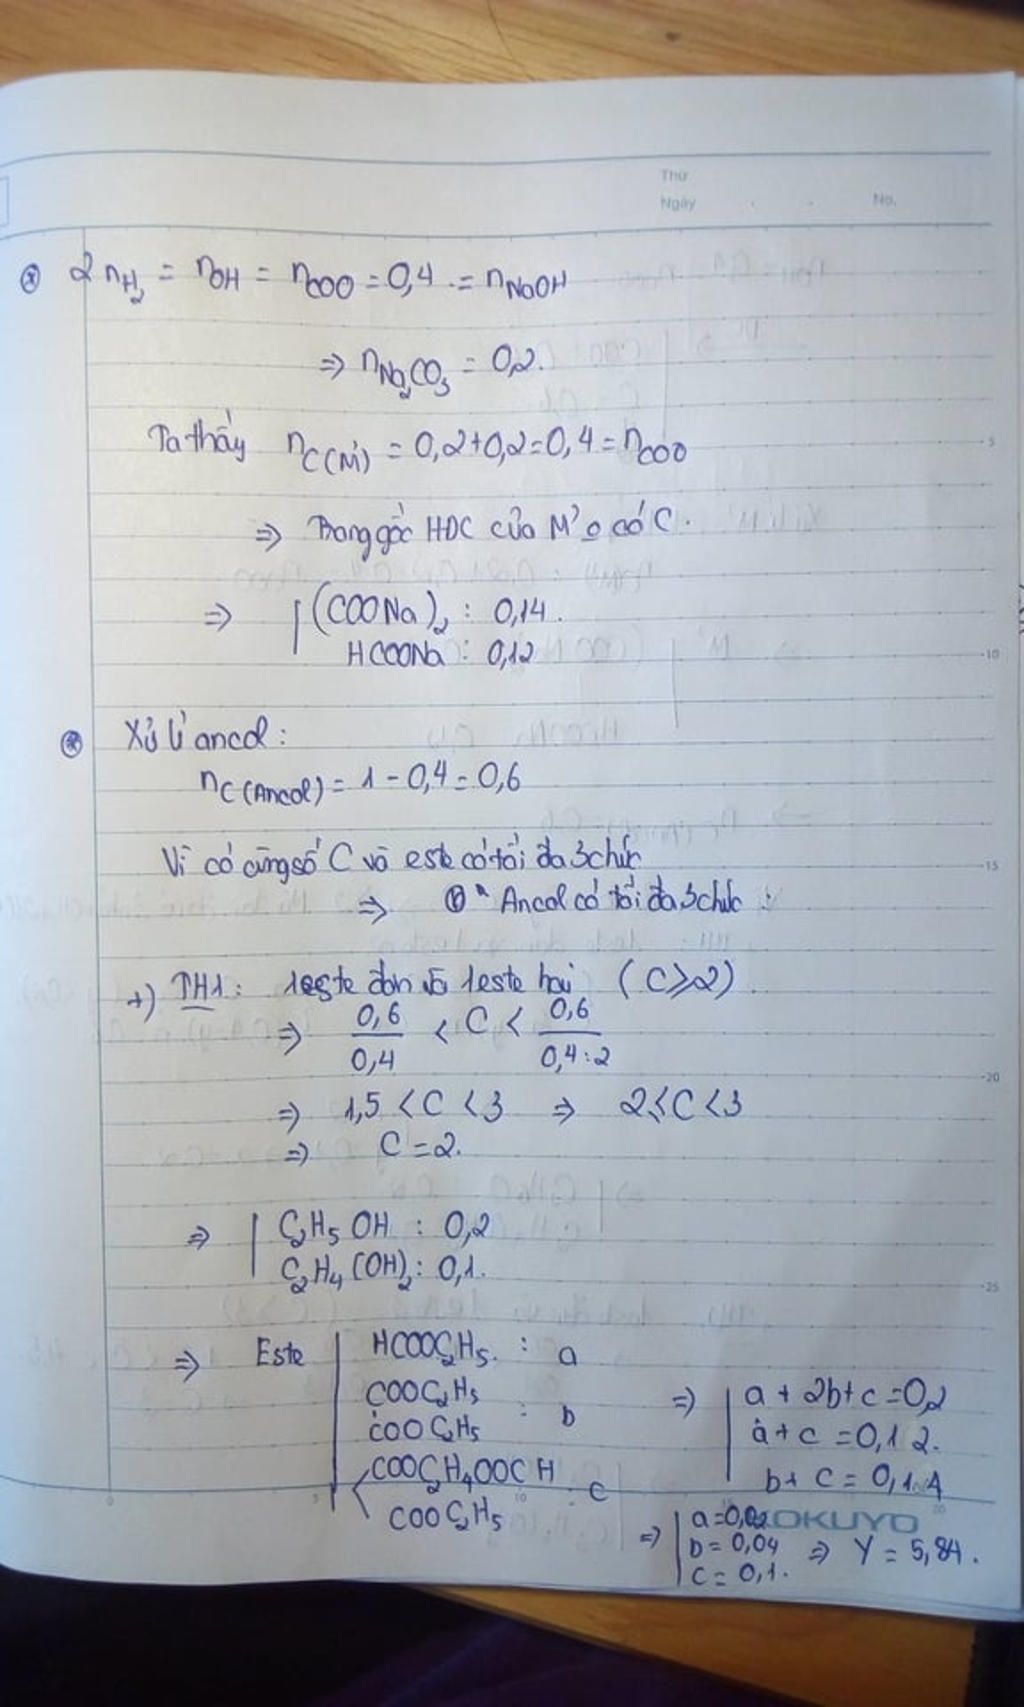 Thứ
Ngày
No.
2n_H₂ = n_OH = n_COO = 0,4 = n_NaOH
⇒ n_Na₂CO₃ = 0,2.
Ta thấy n_C(M') = 0,2+0,2=0,4 = n_COO
⇒ Trong gốc HĐC của M' o có C.
⇒ (COONa)₂ : 0,14.
HCOONa : 0,12
Xử lí ancol :
n_C(Ancol) = 1 - 0,4 = 0,6
Vì có cùng số C và este có tối đa 3 chức
⇒ Ancol có tối đa 3 chức :
+) TH1 : 1 este đơn và 1 este hai (C ≥ 2)
⇒ 0,6/0,4 < C < 0,6/0,4:2
⇒ 1,5 < C < 3 ⇒ 2 ≤ C < 3
⇒ C = 2.
⇒ C₂H₅OH : 0,2
C₂H₄(OH)₂ : 0,1.
⇒ Este HCOOC₂H₅. : a
COOC₂H₅
COOC₂H₅ : b
COOC₂H₄OOCH
COOC₂H₅ : c
⇒ a + 2b + c = 0,2
a + c = 0,12.
b + c = 0,14
KOKUYO
⇒ a = 0,02
b = 0,04 ⇒ Y = 5,84.
c = 0,1.
5
10
15
20
25